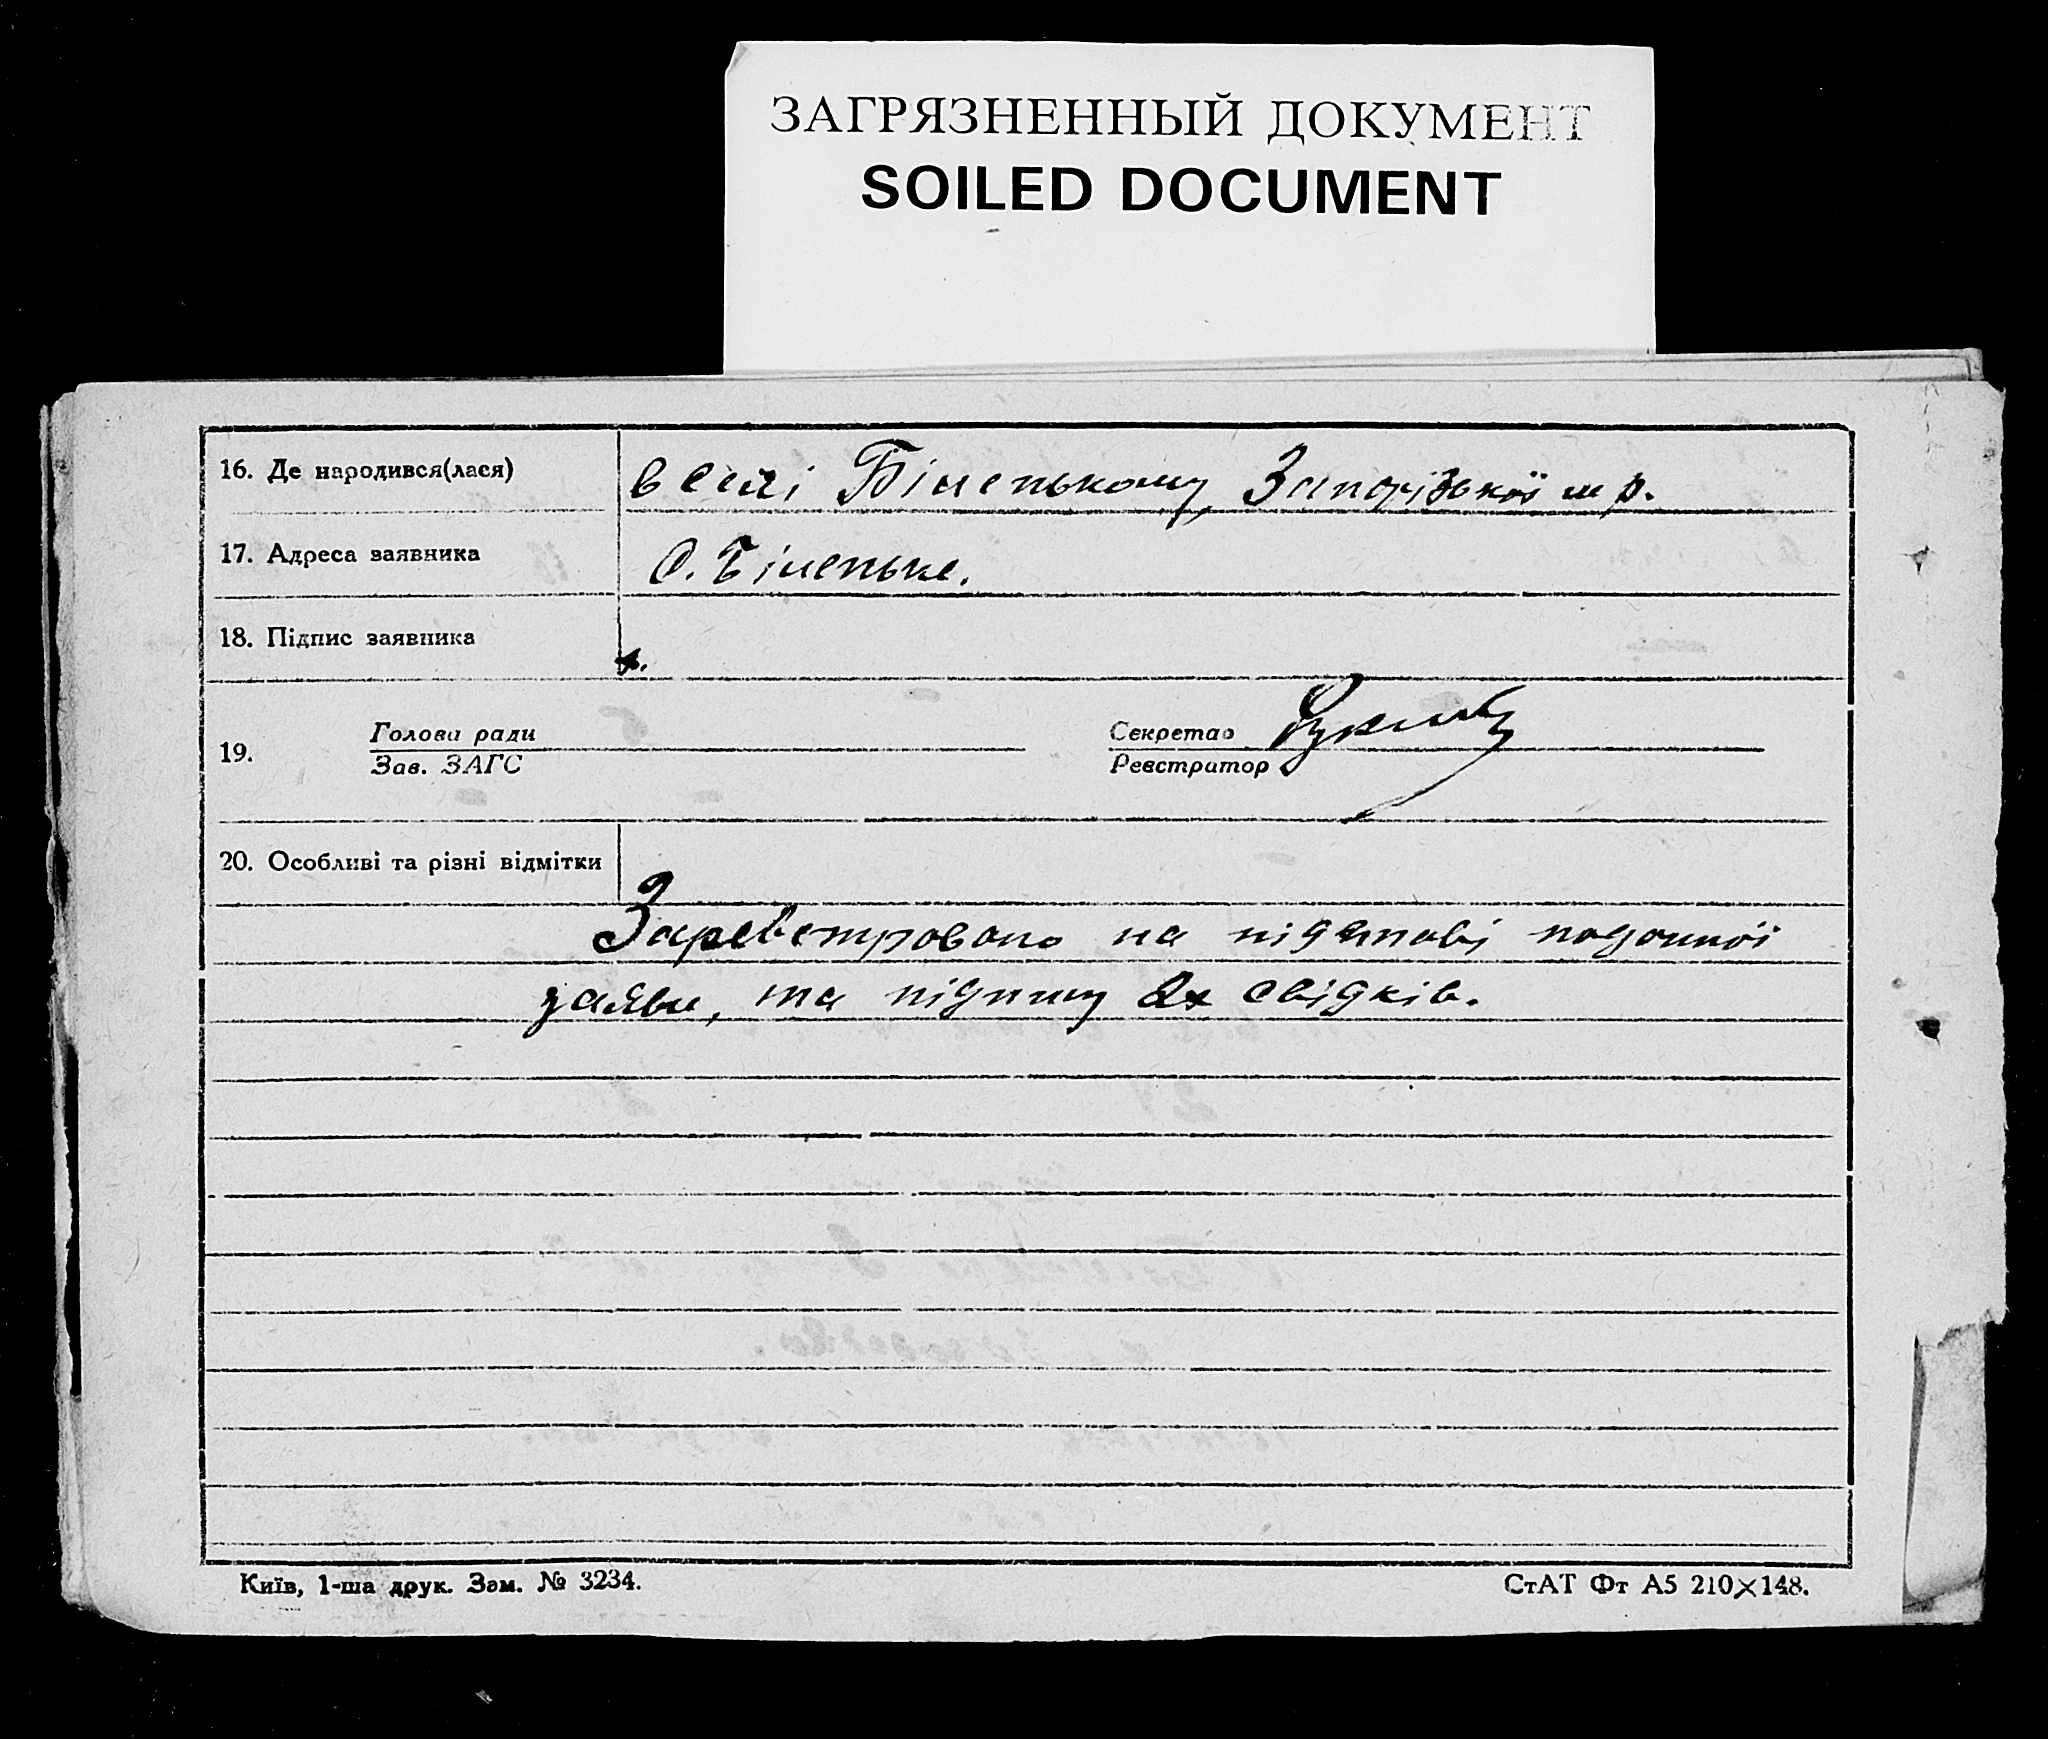 ЗАГРЯЗНЕННЫЙ ДОКУМЕНТ
SOILED DOCUMENT
16. Де народився(лася) в селі Біленькому, Запорізької м р.
17. Адреса заявника С. Біленьке.
18. Підпис заявника
19. Голова ради Секретар
Зав. ЗАГС Реєстратор
20. Особливі та різні відмітки
Зареєстровано на підставі поданної
заяви, та підпису 2х свідків.
Київ, 1-ша друк. Зам. № 3234. СтАТ Фт А5 210×148.